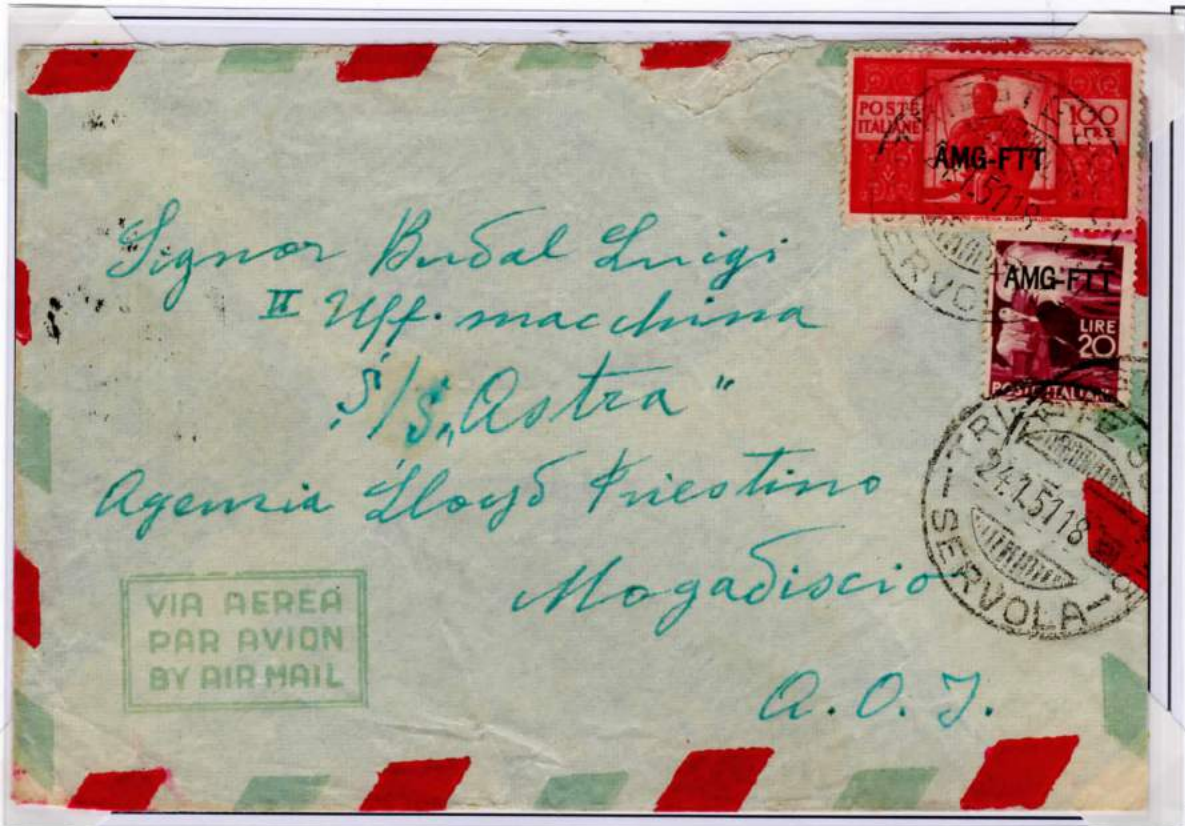 POSTE
ITALIANE
100
LIRE
AMG-FTT
AMG-FTT
LIRE
20
POSTE ITALIANE
24.1.51 18
SERVOLA
Signor Budal Luigi
II Uff. macchina
S/S „Astra"
Agenzia Lloyd Triestino
Mogadiscio
A. O. I.
VIA AEREA
PAR AVION
BY AIR MAIL